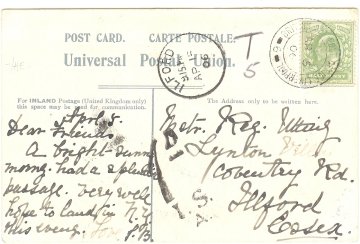 POST CARD. CARTE POSTALE.
Universal Postal Union.
T
5
ILFORD
AP
For INLAND Postage (United Kingdom only) this space may be used for communication.
The Address only to be written here.
April 8.
Dear Friends
A bright sunny
morng. had a splendid
passage. very well
hope to land in N.Y.
this eveng. Love
Mr. Reg.
Lynton
Coventry Rd.
Ilford
Essex.